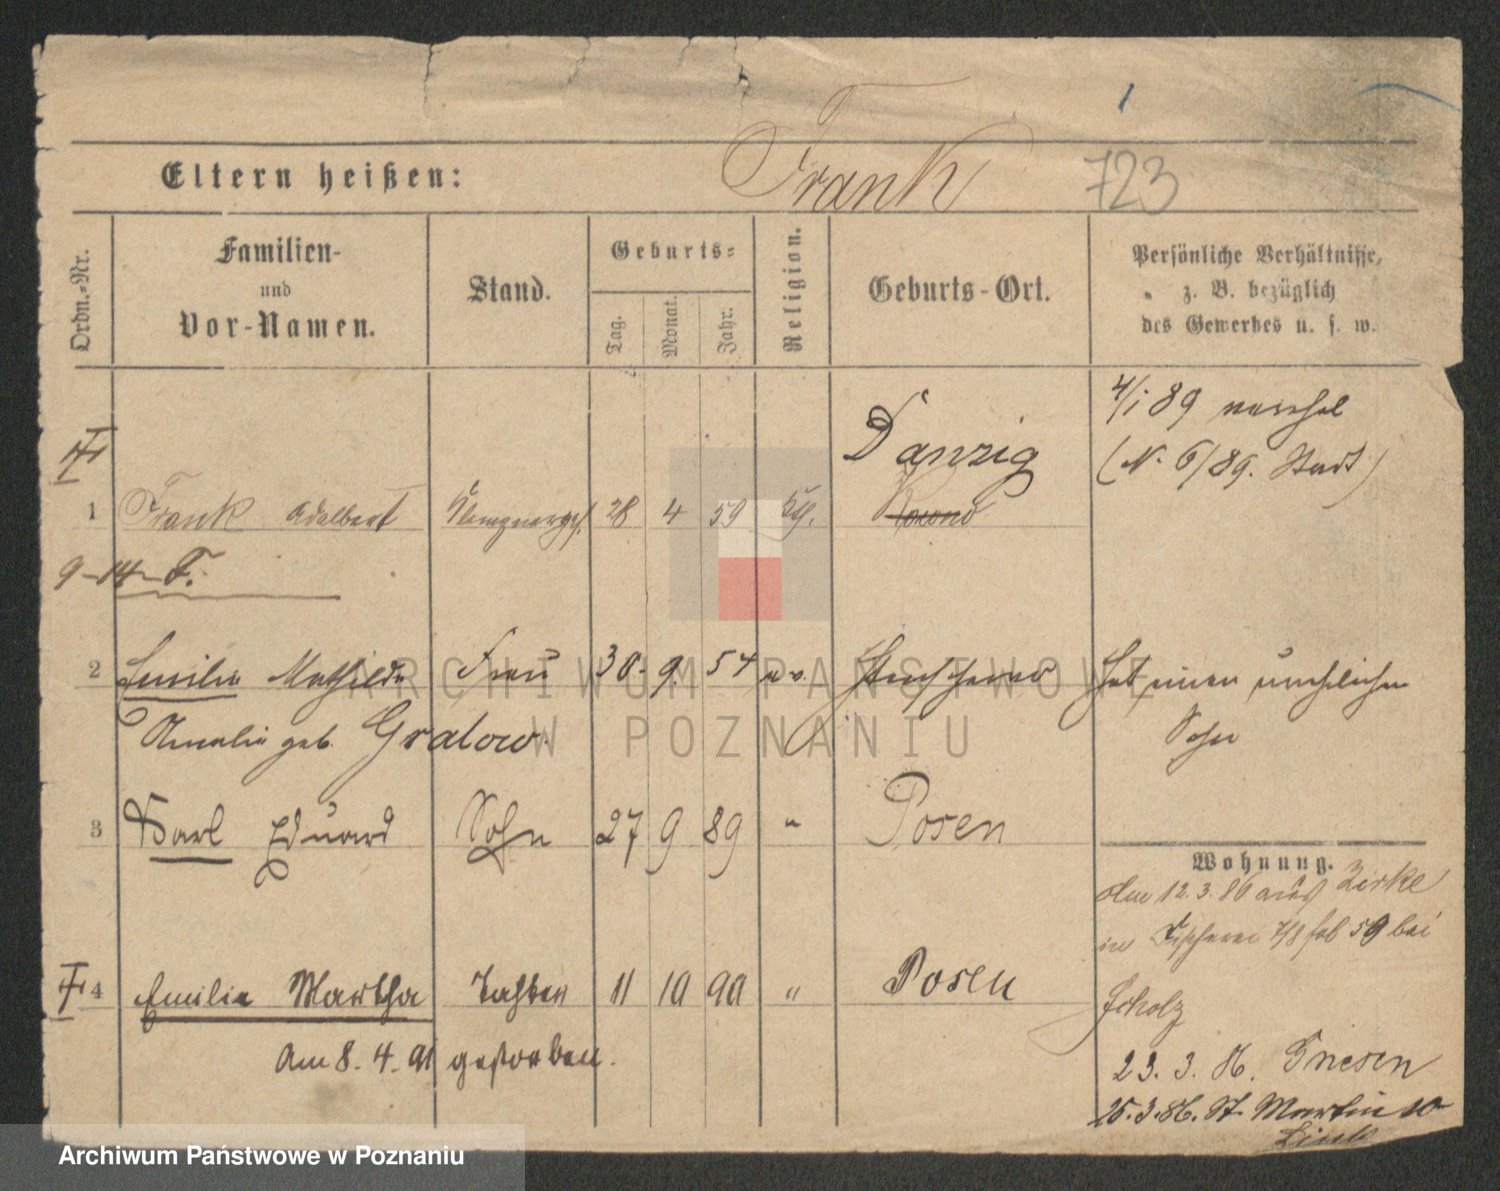 Eltern heißen: Frank 723
Ordn.-Nr.
Familien-
und
Vor-Namen.
Stand.
Geburts-
Tag.
Monat.
Jahr.
Religion.
Geburts-Ort.
Persönliche Verhältnisse,
z. B. bezüglich
des Gewerbes u. s. w.
4/1 89
(N. 6/89. Stadt)
Danzig
1 Frank Adalbert Klempnerges. 28 4 59 kth.
9-14-F.
2 Emilie Mathilde Frau 30. 9 57 ev. Hat einen unehelichen
Amalie geb. Gralow. Sohn
3 Karl Eduard Sohn 27 9 89 " Posen
Wohnung.
Am 12.3.86 aus Zirke
in Fischerei 7/8 59 bei
4 Emilie Martha Tochter 11 10 90 " Posen
Scholz
Am 8. 4. 91 gestorben.
23. 3. 86. Gnesen
25.3.86. St. Martin 10
ARCHIWUM PAŃSTWOWE
W POZNANIU
Archiwum Państwowe w Poznaniu